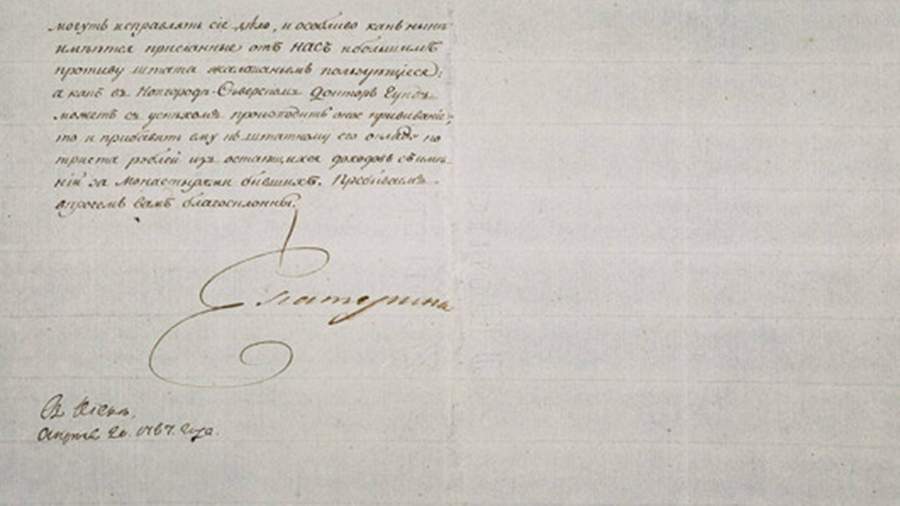 могутъ исправлять сіе дѣло, и особливо какъ нынѣ
имѣются присланные отъ НАСЪ и большимъ
противу штата жалованьемъ пользующіеся:
а какъ въ Новгородѣ-Сѣверскомъ Докторъ Гунъ
можетъ съ успѣхомъ происходить оное прививаніе,
то и прибавить ему къ штатному его окладу по
триста рублей изъ остающихся доходовъ съ имѣ-
ній за Монастырями бывшихъ. Пребываемъ
впрочемъ вамъ благосклонны.
Екатерина
Въ Кіевѣ,
Апрѣля 20. 1787. года.